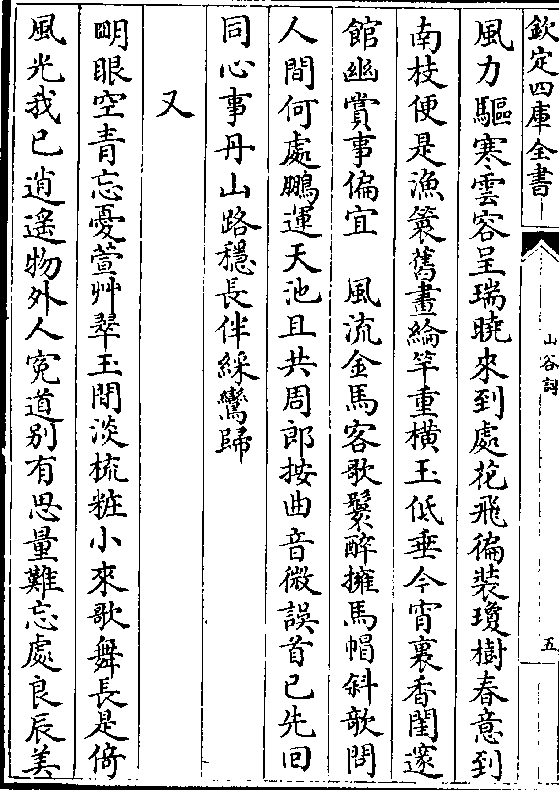 欽定四庫全書
山谷詞
五
風力驅寒雲容呈瑞曉來到處花飛徧裝瓊樹春意到
南枝便是漁簑舊畫綸竿重橫玉低垂今宵裏香閨邃
館幽賞事偏宜　風流金馬客歌鬟醉擁馬帽斜欹問
人間何處鵬運天池且共周郎按曲音微誤首已先回
同心事丹山路穩長伴綵鸞歸
又
眀眼空青忘憂萱艸翠玉閒淡梳粧小來歌舞長是倚
風光我已逍遙物外人寃道别有思量難忘處良辰美